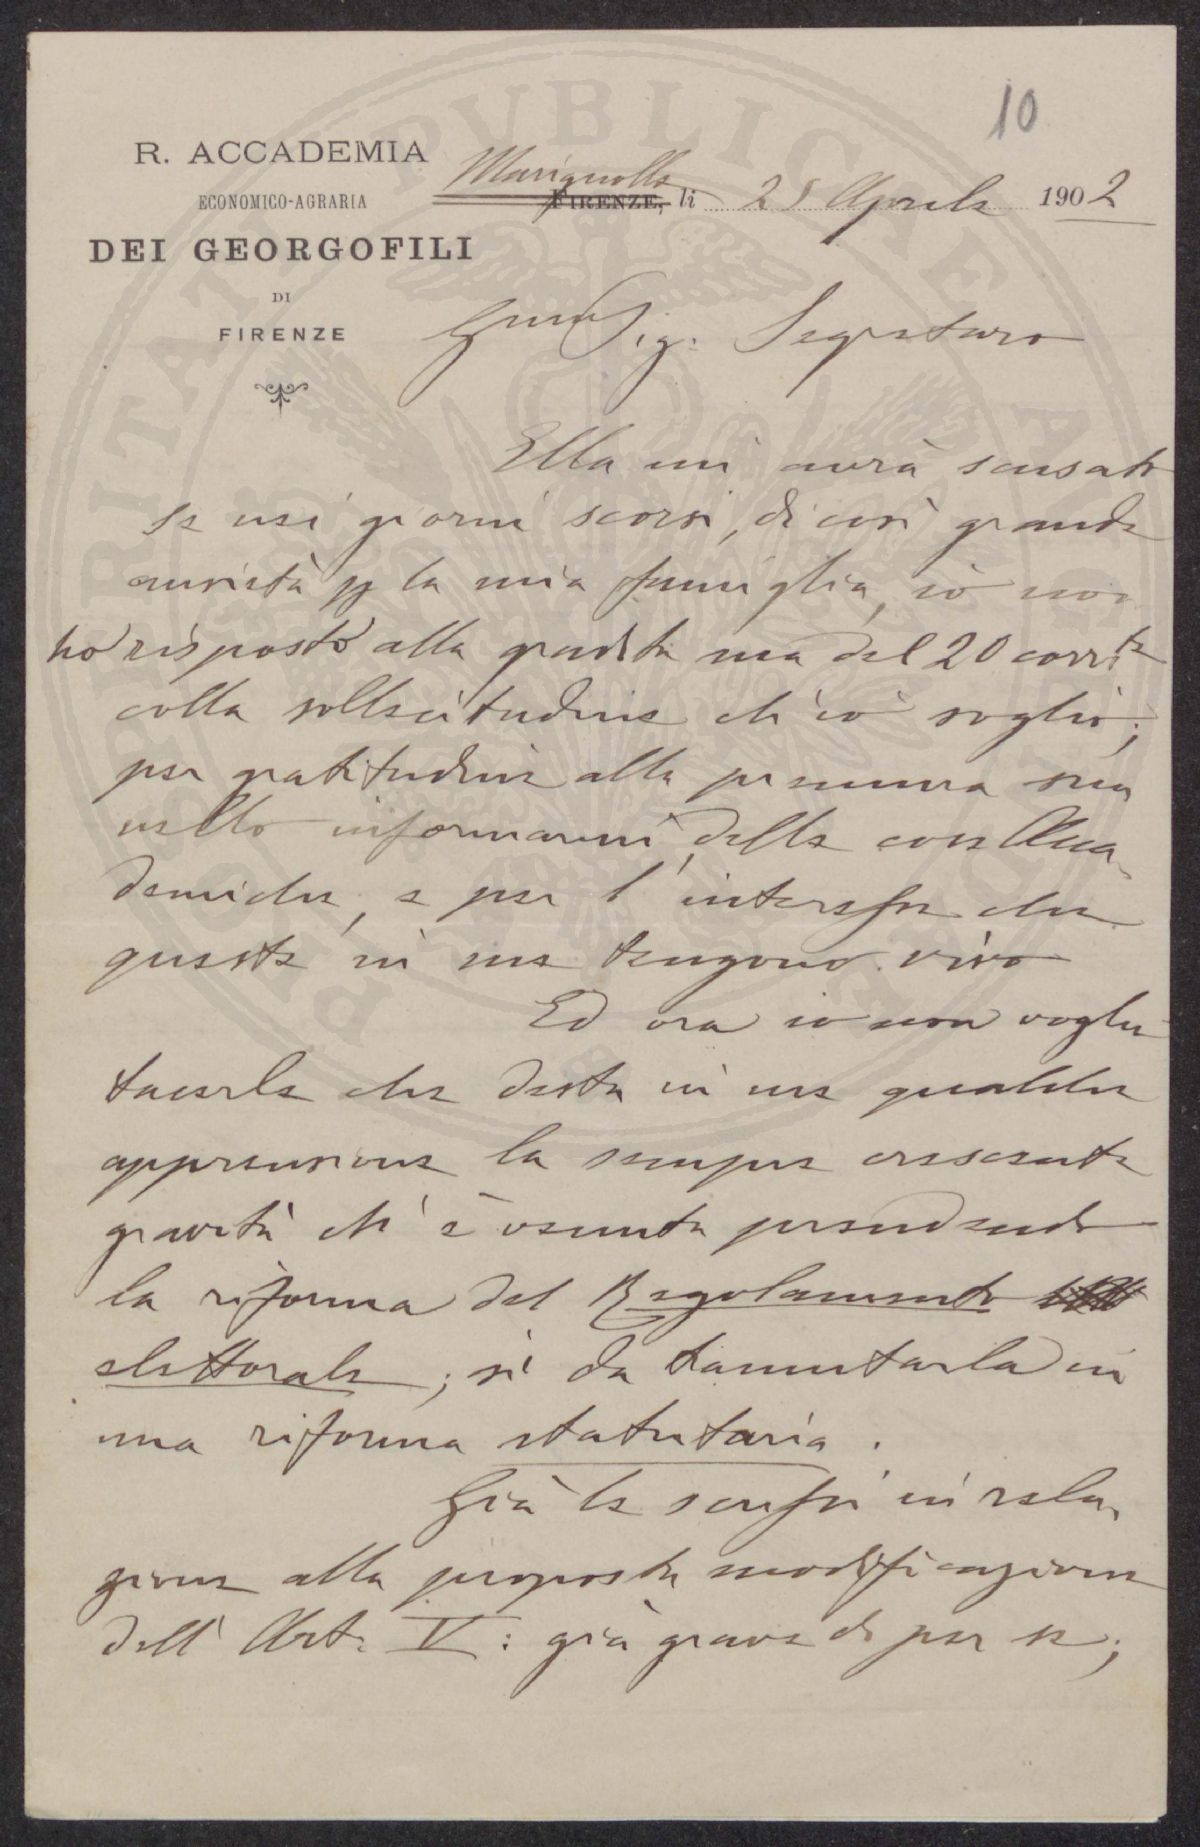 10
R. ACCADEMIA
ECONOMICO-AGRARIA
DEI GEORGOFILI
DI
FIRENZE
Marignolle
FIRENZE, li 25 Aprile 1902
Sig. Segretario
Ella mi avrà scusato
se nei giorni scorsi, di così grande
ansietà p la mia famiglia, io non
ho risposto alla gradita sua del 20 corrte
colla sollecitudine ch'io soglio;
per gratitudine alla premura sua
nello informarmi delle cose Acca-
demiche, e per l'interesse che
queste in me tengono vivo
Ed ora io non voglio
tacerle che desta in me qualche
apprensione la sempre crescente
gravità ch'è venuta prendendo
la riforma del Regolamento
elettorale; sì da tramutarla in
una riforma statutaria.
Già le scrissi in rela-
zione alla proposta modificazione
dell'Art. V: già grave di per se;